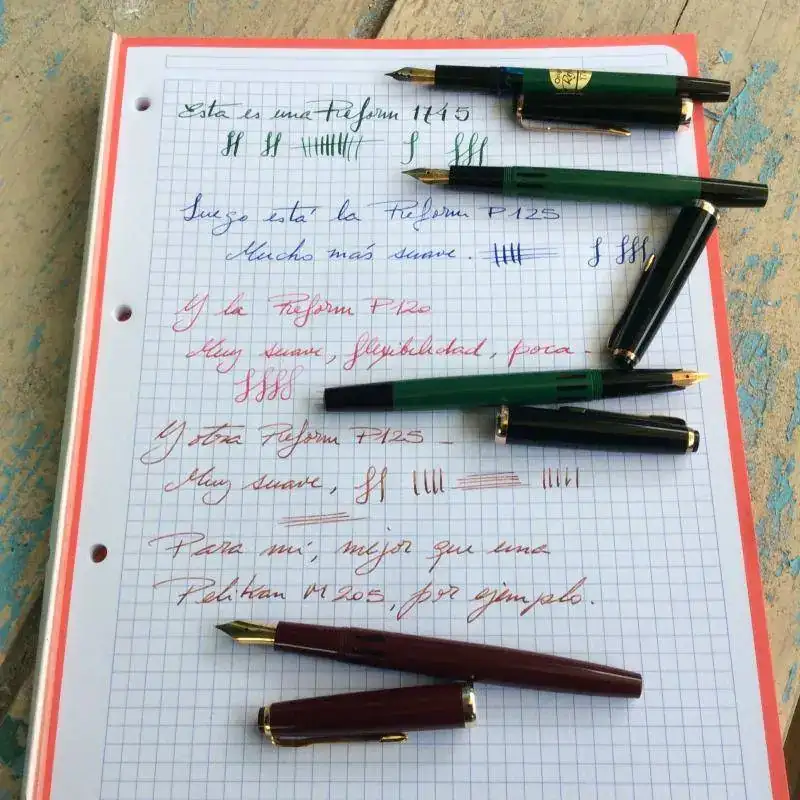 Esta es una Reform 1745
Luego está la Reform P125
Mucho más suave.
Y la Reform P120
Muy suave, flexibilidad, poca -
Y otra Reform P125 -
Muy suave,
Para mí, mejor que una
Pelikan M205, por ejemplo.